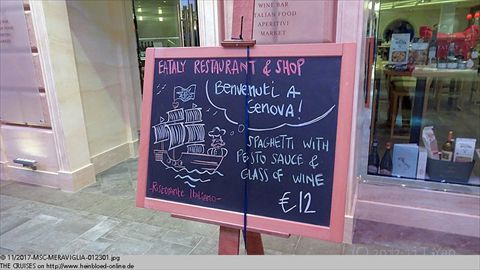 WINE BAR
ITALIAN FOOD
APERITIVI
MARKET
EATALY RESTAURANT & SHOP
BENVENUTI A
GENOVA!
SPAGHETTI WITH
PESTO SAUCE &
GLASS OF WINE
€12
-Ristorante Italiano-
© 11/2017-MSC-MERAVIGLIA-012301.jpg
THE CRUISES on http://www.heinbloed-online.de